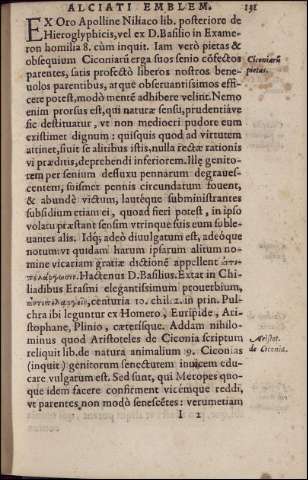 ALCIATI EMBLEM. 131
EX Oro Apolline Niliaco lib. posteriore de
Hieroglyphicis, vel ex D. Basilio in Exame-
ron homilia 8. cùm inquit. Iam verò pietas &
obsequium Ciconiarũ erga suos senio cõfectos
Ciconiarũ
pietas.
parentes, satis profectò liberos nostros bene-
uolos parentibus, atque obseruantissimos effi-
cere potest, modò mentẽ adhibere velint. Nemo
enim prorsus est, qui naturæ sensu, prudentiáve
sic destituatur, vt non mediocri pudore eum
existimet dignum: quisquis quod ad virtutem
attinet, siuit se alitibus istis, nulla rectæ rationis
vi præditis, deprehendi inferiorem. Illæ genito-
rem per senium defluxu pennarum degraues-
centem, suismet pennis circundatum fouent,
& abundè victum, lautéque subministrantes
subsidium etiam ei, quoad fieri potest, in ipso
volatu præstant sensim vtrinque suis eum suble-
uantes alis. Idq; adeò diuulgatum est, adeóque
notum: vt quidam harum ipsarum alitum no-
mine vicariam gratiæ dictionẽ appellent ἀντι-
πελάργωσιν. Hactenus D. Basilius. Extat in Chi-
liadibus Erasmi elegantissimum prouerbium,
ἀντιπελαργεῖν, centuria 10. chil. 2. in prin. Pul-
chra ibi leguntur ex Homero, Euripide, Ari-
stophane, Plinio, cæterisque. Addam nihilo-
minus quod Aristoteles de Ciconia scriptum
Aristot.
de Ciconia.
reliquit lib. de natura animalium 9. Ciconias
(inquit) genitorum senectutem inuicem edu-
care vulgatum est. Sed sunt, qui Meropes quo-
que idem facere confirment vicémque reddi,
vt parentes non modò senescẽtes: verumetiam
I 2